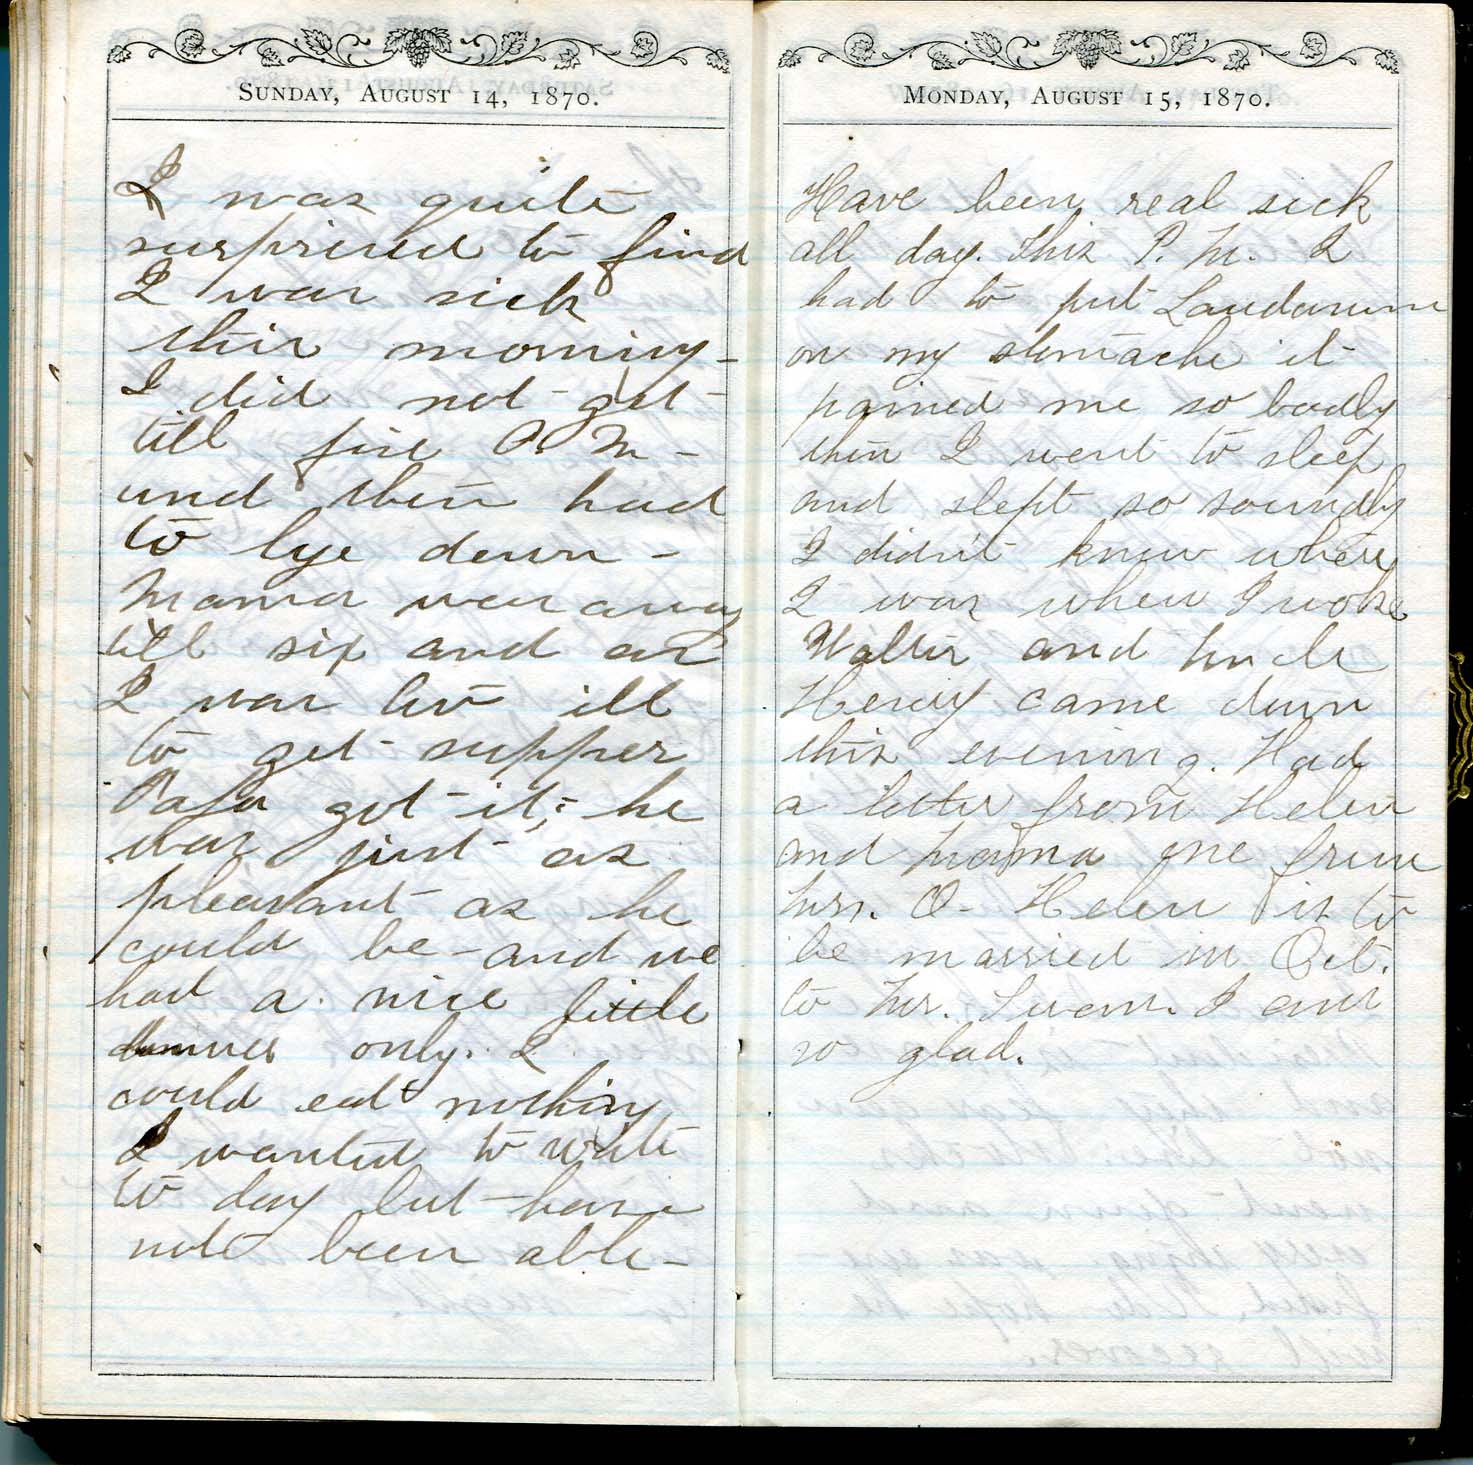 SUNDAY, AUGUST 14, 1870.
I was quite
surprised to find
I was sick
this morning -
I did not get
till five P. M -
and then had
to lye down -
Mama was away
till six and as
I was too ill
to get supper
Papa got it; he
was just as
pleasant as he
could be - and we
had a nice little
dinner only. I
could eat nothing
I wanted to write
to day but have
not been able -
MONDAY, AUGUST 15, 1870.
Have been real sick
all day. This P. M. I
had to put Laudanum
on my stomache it
pained me so badly
then I went to sleep
and slept so soundly
I didn't know where
I was when I woke
Walter and Uncle
Henry came down
this evening. Had
a letter from Helen
and Mama one from
Mrs. O - Helen is to
be married in Oct.
to Mr. I am
so glad.